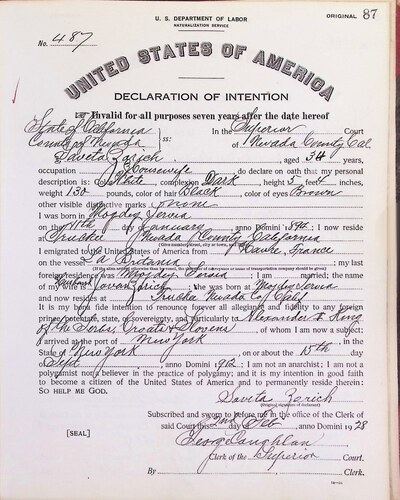 U. S. DEPARTMENT OF LABOR
NATURALIZATION SERVICE
ORIGINAL 87
No. 487
UNITED STATES OF AMERICA
DECLARATION OF INTENTION
☞ Invalid for all purposes seven years after the date hereof
State of California In the Superior Court
County of Nevada ss: of Nevada County Cal.
I, Saveta Zerich, aged 34 years,
occupation Housewife, do declare on oath that my personal
description is: Color White, complexion Dark, height 5 feet inches,
weight 130 pounds, color of hair Black, color of eyes Brown
other visible distinctive marks none
I was born in Mozdej Servia
on the 11th day of January, anno Domini 1894; I now reside
at Truckee Nevada County California
I emigrated to the United States of America from Havre, France
on the vessel La Britania; my last
foreign residence was Mozdej Servia; I am married; the name
of my husband is Jovan Zerich; he was born at Mozdej Servia
and now resides at Truckee Nevada Co. Calif
It is my bona fide intention to renounce forever all allegiance and fidelity to any foreign
prince, potentate, state, or sovereignty, and particularly to Alexander I King
of the Serbs Croats & Slovens, of whom I am now a subject;
I arrived at the port of New York, in the
State of New York, on or about the 15th day
of Sept, anno Domini 1912; I am not an anarchist; I am not a
polygamist nor a believer in the practice of polygamy; and it is my intention in good faith
to become a citizen of the United States of America and to permanently reside therein:
SO HELP ME GOD.
Saveta Zerich
(Original signature of declarant)
Subscribed and sworn to before me in the office of the Clerk of
said Court this 2nd day of Feb, anno Domini 1928
[SEAL]
George Coughlan
Clerk of the Superior Court.
By , Clerk.